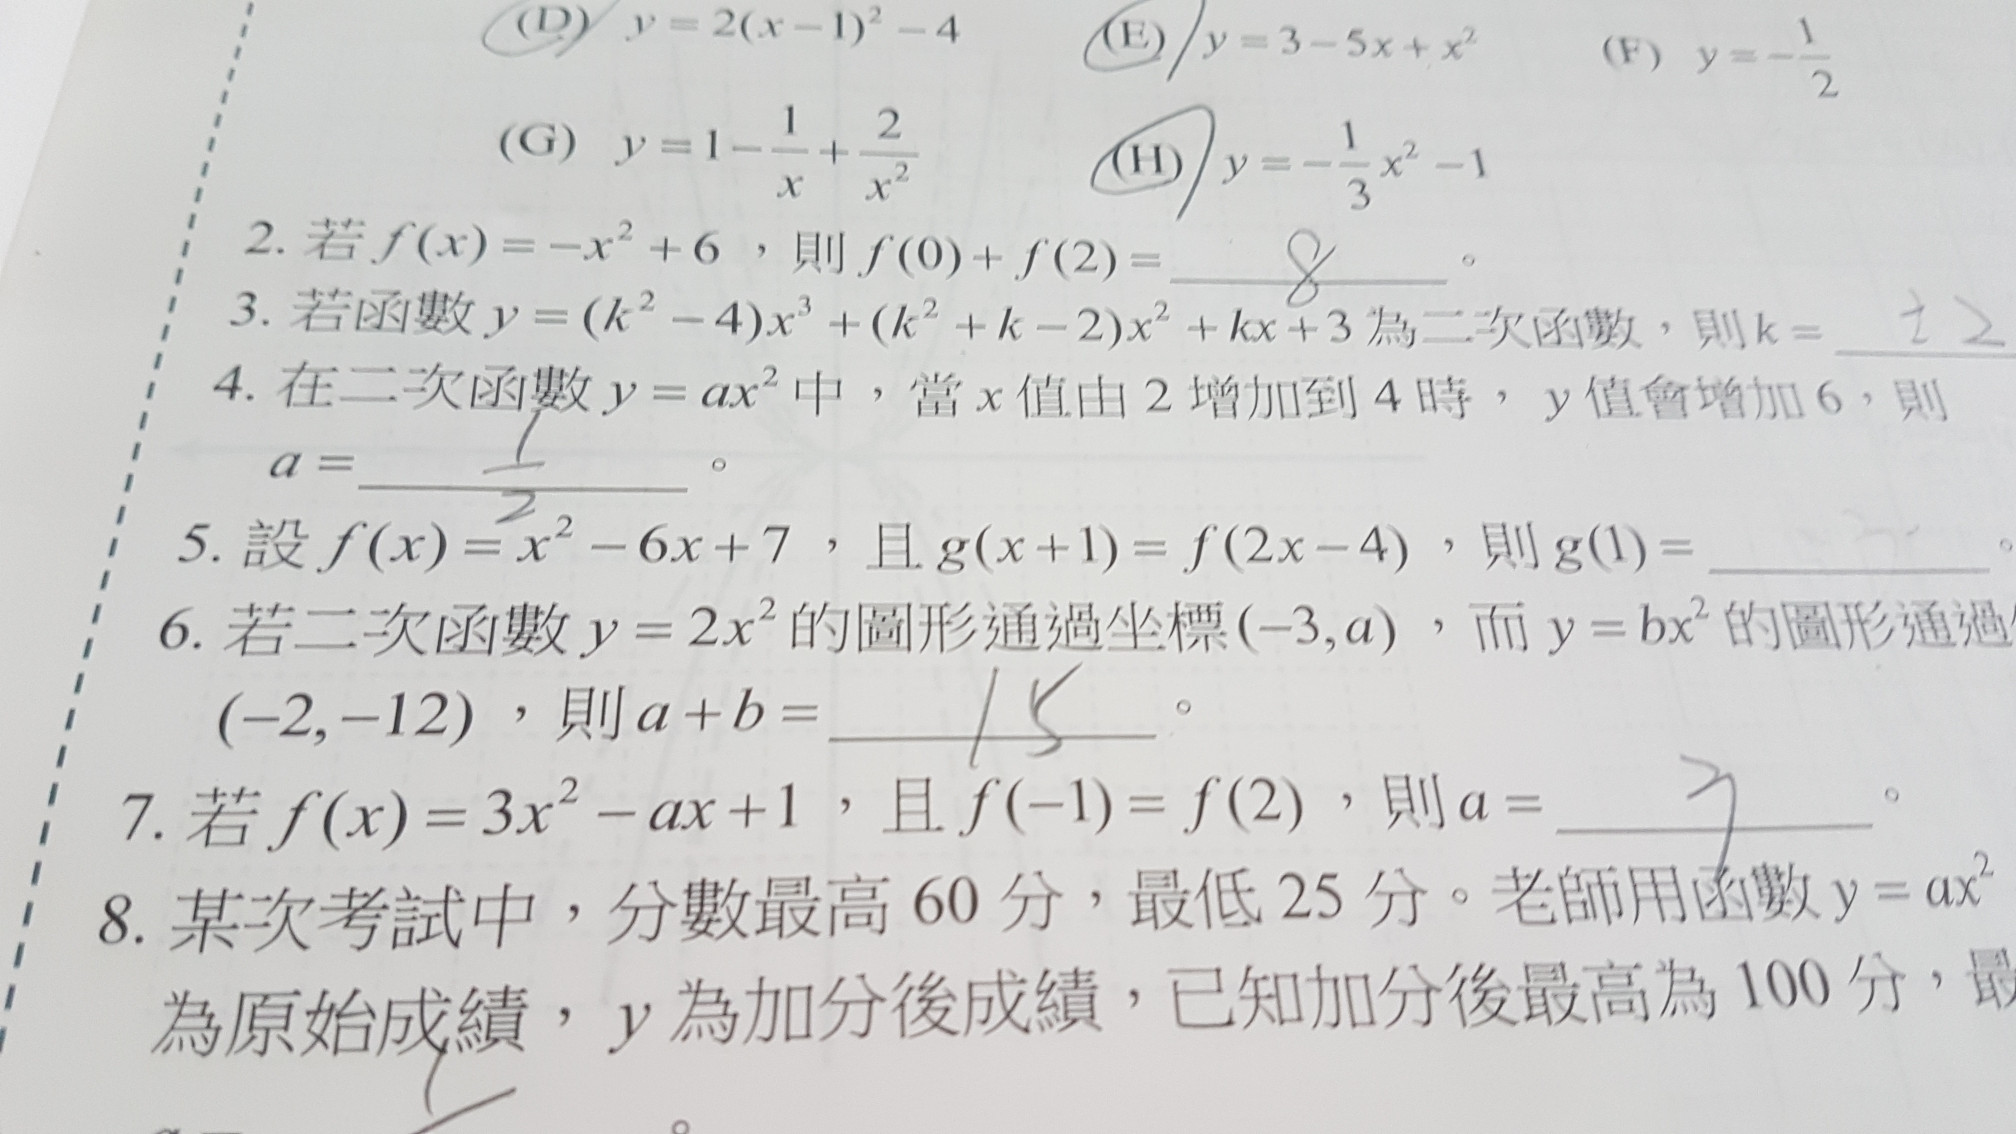 (D) y = 2(x − 1)² − 4 (E) y = 3 − 5x + x² (F) y = −1/2
(G) y = 1 − 1/x + 2/x² (H) y = −1/3 x² − 1
2. 若 f(x) = −x² + 6 ，則 f(0) + f(2) = 8 。
3. 若函數 y = (k² − 4)x³ + (k² + k − 2)x² + kx + 3 為二次函數，則 k = ±2
4. 在二次函數 y = ax² 中，當 x 值由 2 增加到 4 時， y 值會增加 6，則
a = 1/2 。
5. 設 f(x) = x² − 6x + 7 ，且 g(x + 1) = f(2x − 4) ，則 g(1) = 。
6. 若二次函數 y = 2x² 的圖形通過坐標 (−3, a) ，而 y = bx² 的圖形通過
(−2, −12) ，則 a + b = 15 。
7. 若 f(x) = 3x² − ax + 1 ，且 f(−1) = f(2) ，則 a = 3 。
8. 某次考試中，分數最高 60 分，最低 25 分。老師用函數 y = ax²
為原始成績， y 為加分後成績，已知加分後最高為 100 分，最